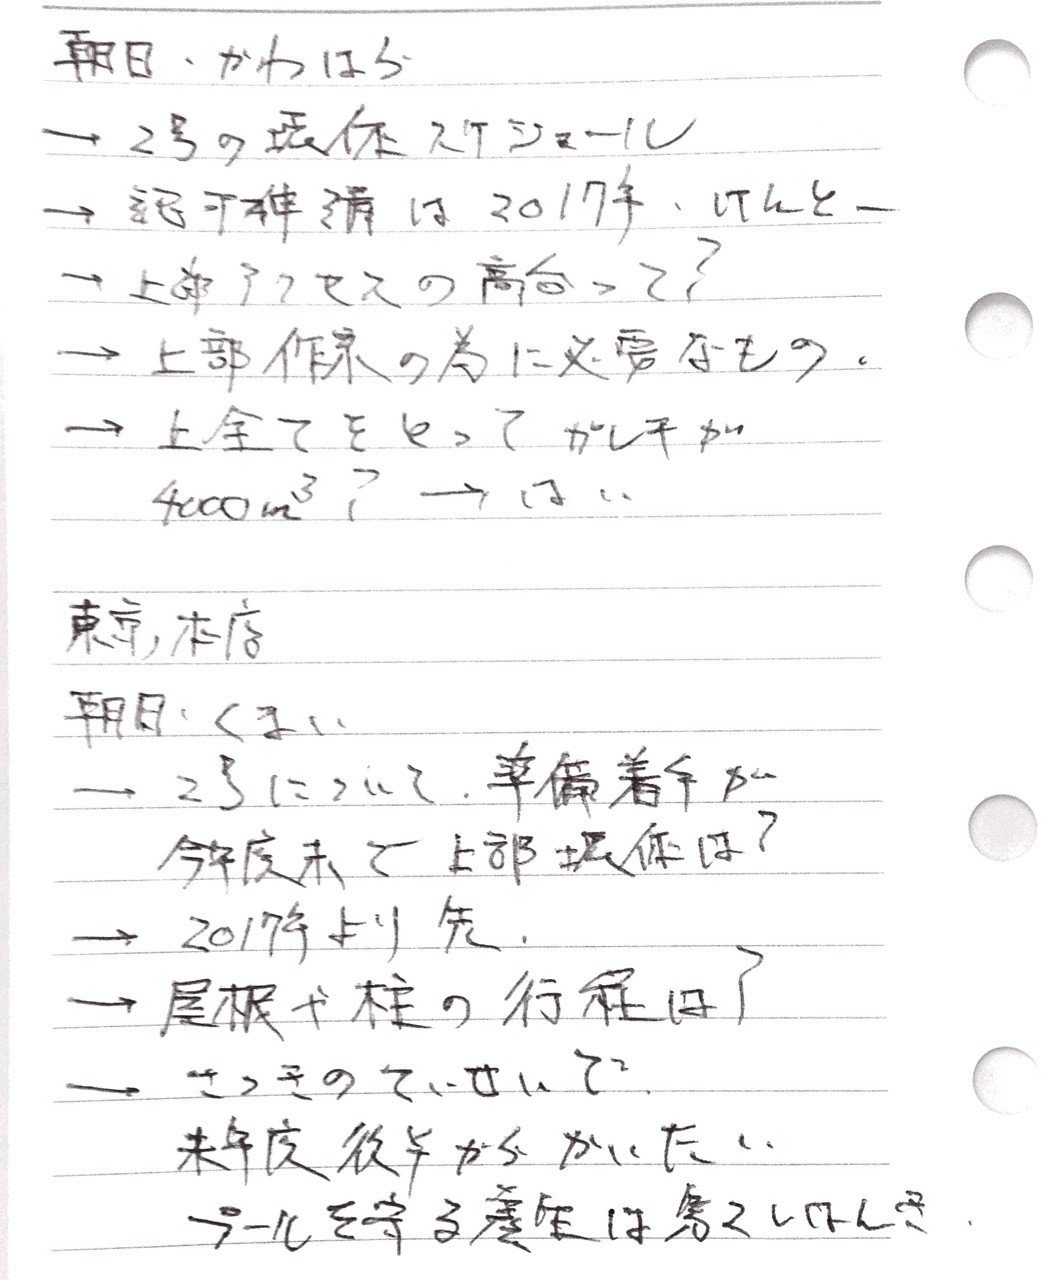 朝日・かわはら
→ 2号の環体スケジュール
→ 認可準備は2017年、けんとー
→ 上部アクセスの高台って?
→ 上部作業の為に必要なもの.
→ 上全てをとってガレキが
4000m³? → はい
東京、本店
朝日・くまい
→ 2号について、準備着手が
今年度末で上部 は?
→ 2017年より先.
→ 屋根や柱の行程は?
→ さっきのていせいで、
来年度後半からかいたい
プールを守る養生は